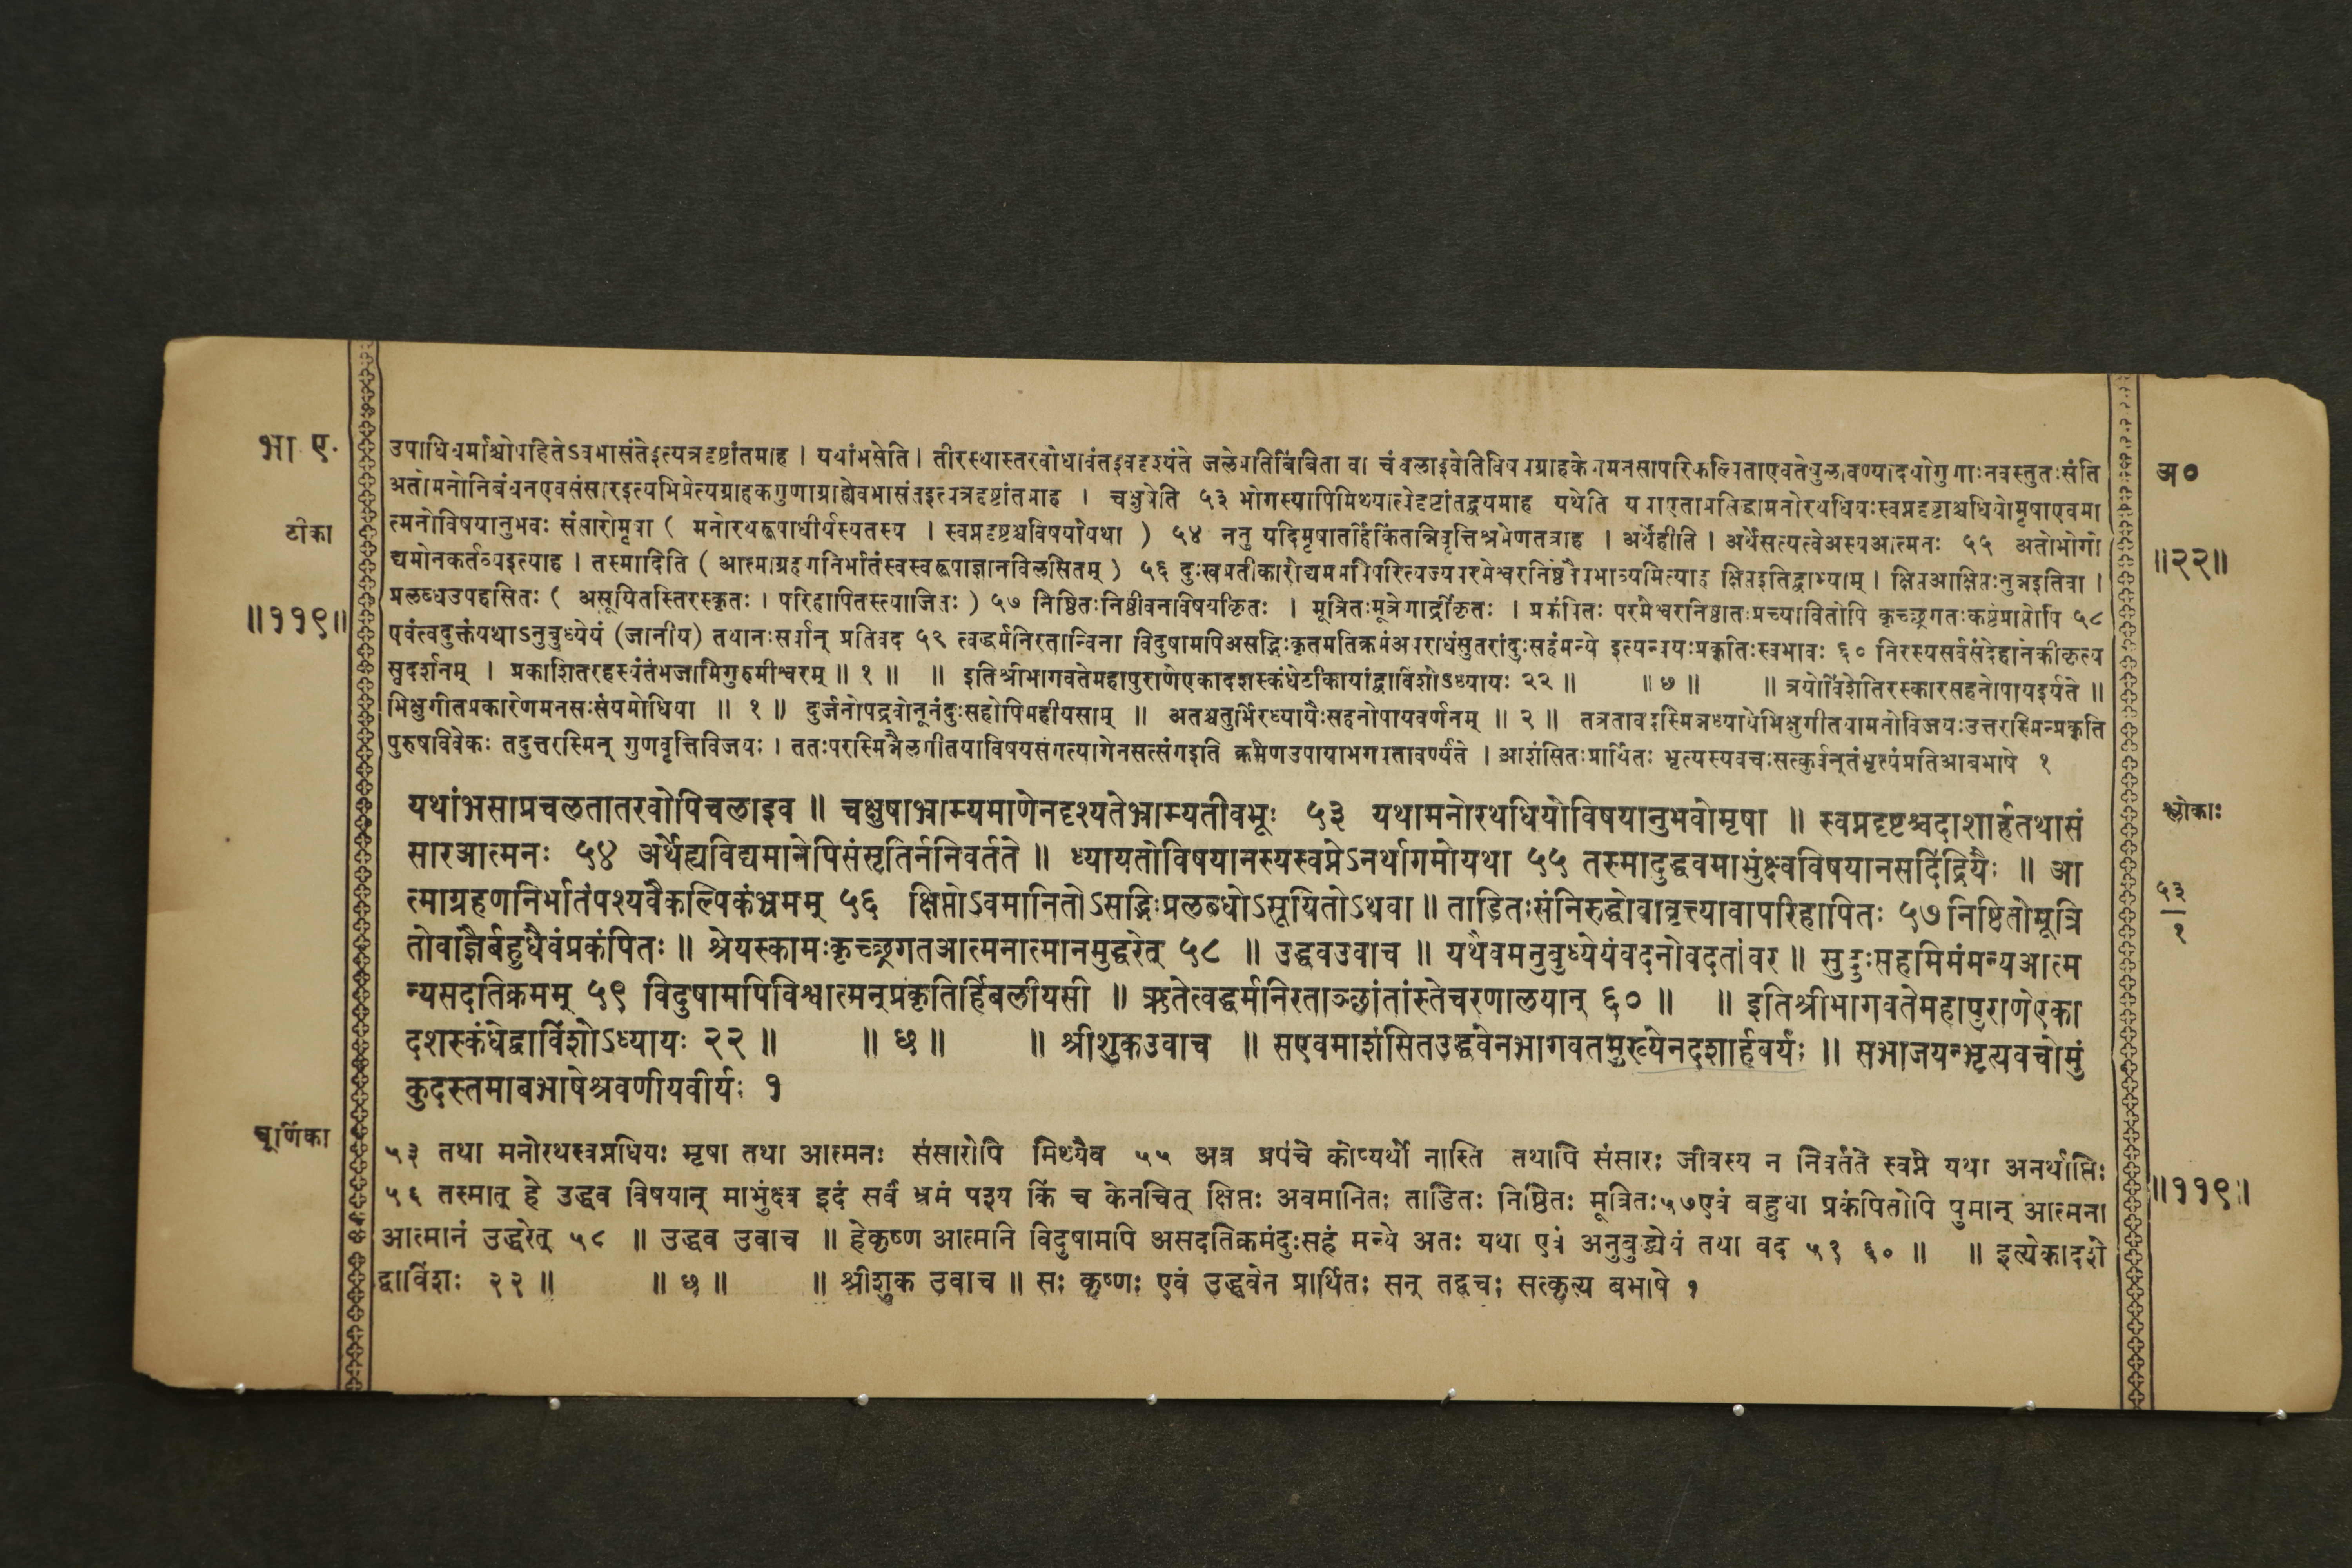 भा. ए.
टीका
॥११९॥
चूर्णिका
उपाधिधर्माश्चोपहितेऽवभासंतेइत्यत्रदृष्टांतमाह । यथांभसेति । तीरस्थास्तरवोधावंतइवदृश्यंते जलेप्रतिबिंबिता वा चंचलाइवेतिविषयग्राहकेणमनसापरिकल्पिताएवते
अतोमनोनिबंधनएवसंसारइत्यभिप्रेत्यग्राहकगुणाग्राह्येवभासंतइत्यत्रदृष्टांतमाह । चक्षुषेति ५३ भोगस्यापिमिथ्यात्वेदृष्टांतद्वयमाह यथेति
त्मनोविषयानुभवः संसारोमृषा ( मनोरथरूपाधीर्यस्यतस्य । स्वप्नदृष्टश्चविषयोयथा ) ५४ ननु यदिमृषातर्हिकिंतन्निवृत्तिश्रमेणतत्राह । अर्थेहीति । अर्थेसत्यत्वेअस्यआत्मनः ५५ अतोभोगो
द्यमोनकर्तव्यइत्याह । तस्मादिति ( आत्माग्रहणनिर्भातंस्वस्वरूपाज्ञानविलसितम् ) ५६ दुःखप्रतीकारोद्यममपिपरित्यज्यपरमेश्वरनिष्ठेनैवभाव्यमित्याह क्षिप्तइतिद्वाभ्याम् । क्षिप्तआक्षिप्तःनुन्नइतिवा ।
प्रलब्धउपहसितः ( असूयितस्तिरस्कृतः । परिहापितस्त्याजितः ) ५७ निष्ठितःनिष्ठीवनविषयीकृतः । मूत्रितःमूत्रेणार्द्रीकृतः । प्रकंपितः परमेश्वरनिष्ठातःप्रच्यावितोपि कृच्छ्रगतःकष्टंप्राप्तोपि ५८
एवंत्वदुक्तंयथाऽनुबुध्येयं (जानीय) तथानःसर्वान् प्रतिवद ५९ त्वद्धर्मनिरतान्विना विदुषामपिअसद्भिःकृतमतिक्रमंअपराधंसुतरांदुःसहंमन्ये इत्यन्वयःप्रकृतिःस्वभावः ६० निरस्यसर्वसंदेहानेकीकृत्य
सुदर्शनम् । प्रकाशितरहस्यंतंभजामिगुरुमीश्वरम् ॥ १ ॥ ॥ इतिश्रीभागवतेमहापुराणेएकादशस्कंधेटीकायांद्वाविंशोऽध्यायः २२ ॥ ॥ ७ ॥ ॥ त्रयोविंशेतिरस्कारसहनोपायइर्यते ॥
भिक्षुगीतप्रकारेणमनसःसंयमोधिया ॥ १ ॥ दुर्जनोपद्रवोनूनंदुःसहोपिमहीयसाम् ॥ अतश्चतुर्भिरध्यायैःसहनोपायवर्णनम् ॥ २ ॥ तत्रतावदस्मिन्नध्यायेभिक्षुगीतयामनोविजयःउत्तरस्मिन्प्रकृति
पुरुषविवेकः तदुत्तरस्मिन् गुणवृत्तिविजयः । ततःपरस्मिन्नैलगीतयाविषयसंगत्यागेनसत्संगइति क्रमेणउपायाभगवतावर्ण्यंते । आशंसितःप्रार्थितः भृत्यस्यवचःसत्कुर्वन्तंभृत्यंप्रतिआबभाषे १
यथांभसाप्रचलतातरवोपिचलाइव ॥ चक्षुषाभ्राम्यमाणेनदृश्यतेभ्राम्यतीवभूः ५३ यथामनोरथधियोविषयानुभवोमृषा ॥ स्वप्नदृष्टश्चदाशार्हतथासं
सारआत्मनः ५४ अर्थेह्यविद्यमानेपिसंसृतिर्ननिवर्तते ॥ ध्यायतोविषयानस्यस्वप्नेऽनर्थागमोयथा ५५ तस्मादुद्धवमाभुंक्ष्वविषयानसदिंद्रियैः ॥ आ
त्माग्रहणनिर्भातंपश्यवैकल्पिकंभ्रमम् ५६ क्षिप्तोऽवमानितोऽसद्भिःप्रलब्धोऽसूयितोऽथवा ॥ ताडितःसंनिरुद्धोवावृत्त्यावापरिहापितः ५७ निष्ठितोमूत्रि
तोवाज्ञैर्बहुधैवंप्रकंपितः ॥ श्रेयस्कामःकृच्छ्रगतआत्मनात्मानमुद्धरेत् ५८ ॥ उद्धवउवाच ॥ यथैवमनुबुध्येयंवदनोवदतांवर ॥ सुदुःसहमिमंमन्यआत्म
न्यसदतिक्रमम् ५९ विदुषामपिविश्वात्मन्प्रकृतिर्हिबलीयसी ॥ ऋतेत्वद्धर्मनिरताञ्छांतांस्तेचरणालयान् ६० ॥ ॥ इतिश्रीभागवतेमहापुराणेएका
दशस्कंधेद्वाविंशोऽध्यायः २२ ॥ ॥ छ ॥ ॥ श्रीशुकउवाच ॥ सएवमाशंसितउद्धवेनभागवतमुख्येनदशार्हवर्यः ॥ सभाजयन्भृत्यवचोमुं
कुदस्तमाबभाषेश्रवणीयवीर्यः १
५३ तथा मनोरथस्वप्नधियः मृषा तथा आत्मनः संसारोपि मिथ्यैव ५५ अत्र प्रपंचे कोप्यर्थो नास्ति तथापि संसारः जीवस्य न निवर्तते स्वप्ने यथा अनर्थाप्तिः
५६ तस्मात् हे उद्धव विषयान् माभुंक्ष्व इदं सर्वं भ्रमं पश्य किं च केनचित् क्षिप्तः अवमानितः ताडितः निष्ठितः मूत्रितः५७एवं बहुधा प्रकंपितोपि पुमान् आत्मना
आत्मानं उद्धरेत् ५८ ॥ उद्धव उवाच ॥ हेकृष्ण आत्मनि विदुषामपि असदतिक्रमंदुःसहं मन्ये अतः यथा एवं अनुबुद्ध्येयं तथा वद ५९ ६० ॥ ॥ इत्येकादशे
द्वाविंशः २२ ॥ ॥ छ ॥ ॥ श्रीशुक उवाच ॥ सः कृष्णः एवं उद्धवेन प्रार्थितः सन् तद्वचः सत्कृत्य बभाषे १
अ०
॥२२॥
श्लोकाः
५३
१
॥११९॥